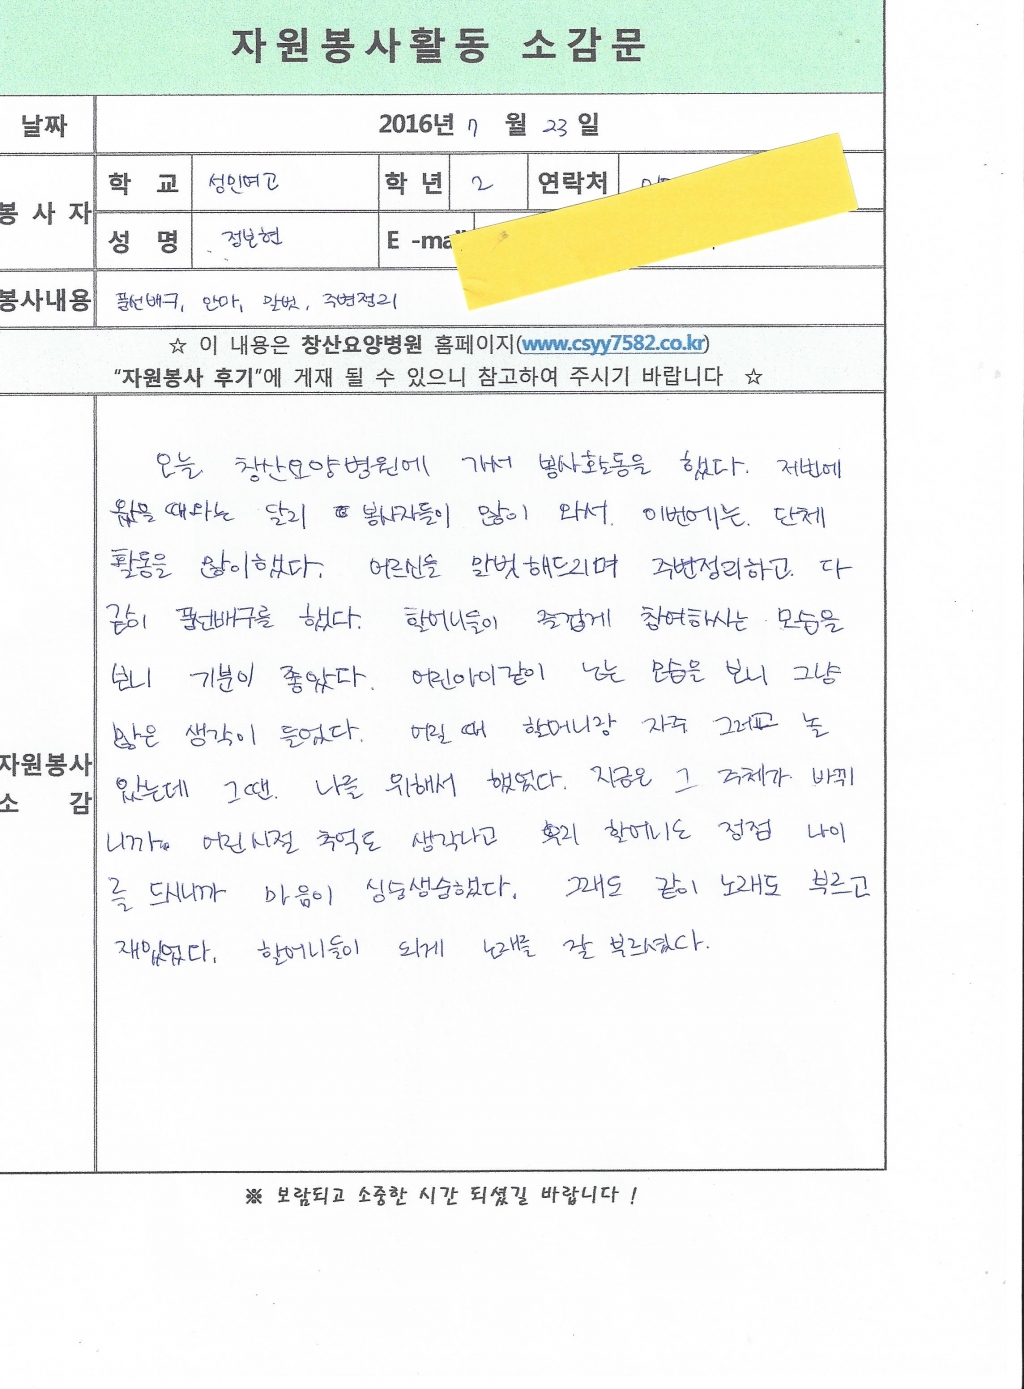 자원봉사활동 소감문
날짜 2016년 7 월 23 일
봉사자 학 교 성인여고 학 년 2 연락처
성 명 정보현 E -mail
봉사내용 풍선배구, 안마, 말벗, 주변정리
☆ 이 내용은 창산요양병원 홈페이지(www.csyy7582.co.kr)
“자원봉사 후기”에 게재 될 수 있으니 참고하여 주시기 바랍니다 ☆
자원봉사
소 감
오늘 창산요양병원에 가서 봉사활동을 했다. 저번에
왔을 때와는 달리 봉사자들이 많이 와서. 이번에는. 단체
활동을 많이했다. 어르신들 말벗해드리며 주변정리하고. 다
같이 풍선배구를 했다. 할머니들이 즐겁게 참여하시는 모습을
보니 기분이 좋았다. 어린아이같이 노는 모습을 보니 그냥
많은 생각이 들었다. 어릴 때 할머니랑 자주 그러고 놀
았는데 그땐. 나를 위해서 했었다. 지금은 그 주체가 바뀌
니까. 어린시절 추억도 생각나고 우리 할머니도 점점 나이
를 드시니까 마음이 싱숭생숭했다. 그래도 같이 노래도 부르고
재밌었다. 할머니들이 되게 노래를 잘 부르셨다.
※ 보람되고 소중한 시간 되셨길 바랍니다 !